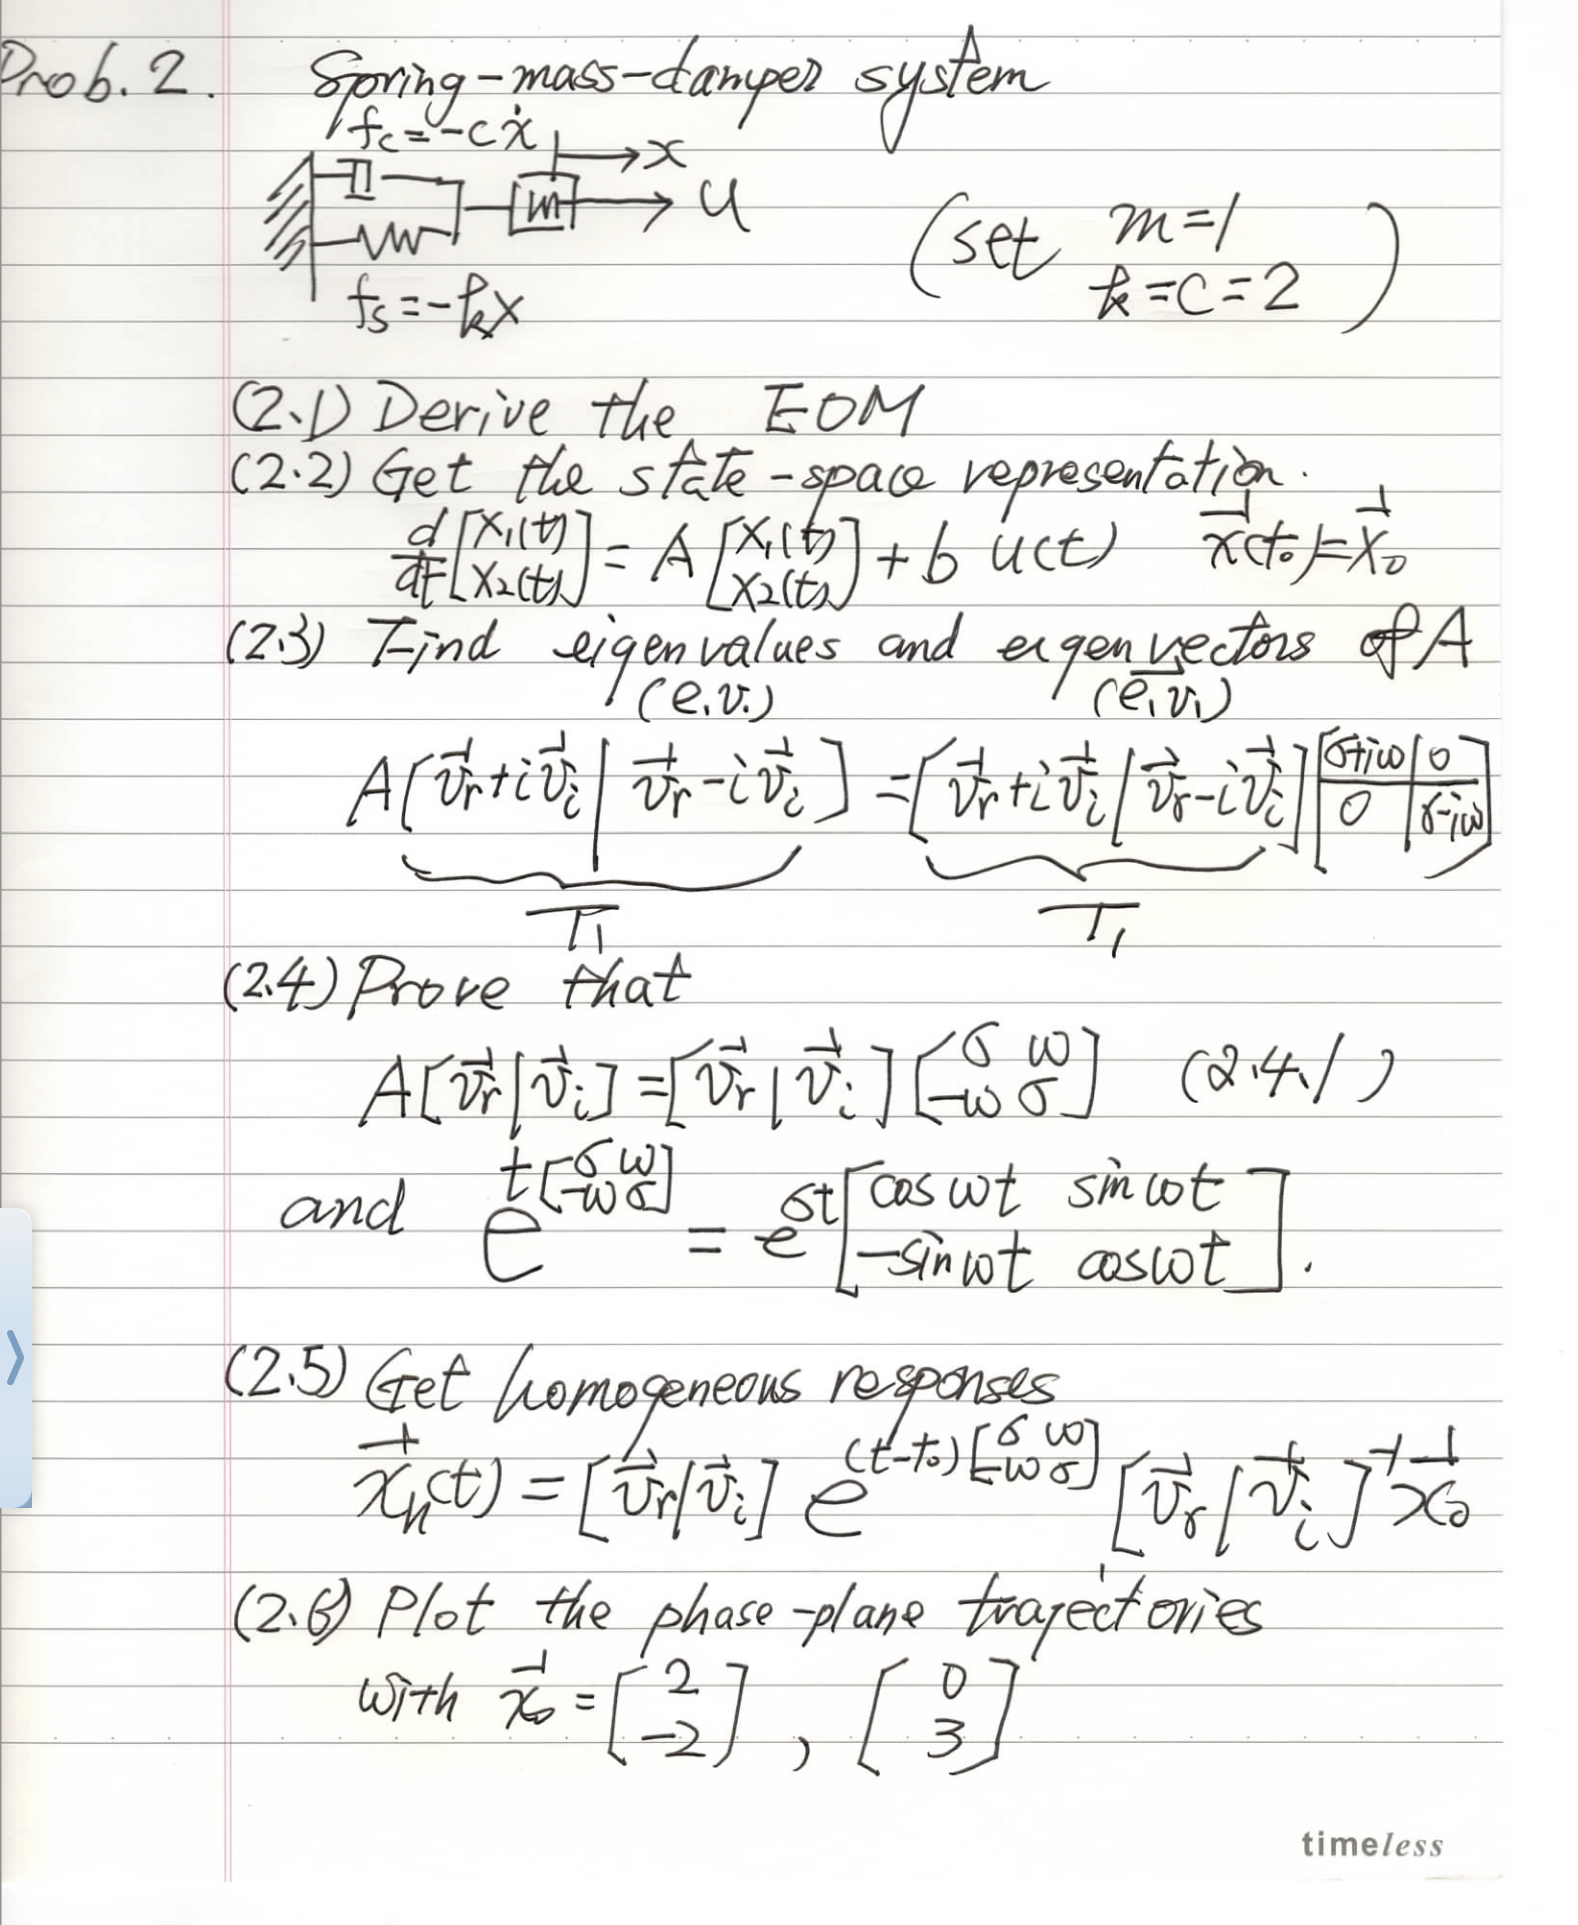 Prob. 2. Spring-mass-damper system
fc = -cẋ
x
m u
(set m=1
k=c=2)
fs = -kx
(2.1) Derive the EOM
(2.2) Get the state-space representation.
d/dt [x₁(t) x₂(t)] = A [x₁(t) x₂(t)] + b u(t) x⃗(t₀) = x⃗₀
(2.3) Find eigenvalues and eigenvectors of A
(e.v.) (e⃗.v.)
A[v⃗r+iv⃗i | v⃗r-iv⃗i] = [v⃗r+iv⃗i | v⃗r-iv⃗i] [σ+iω | 0 ; 0 | σ-iω]
T₁ T₁
(2.4) Prove that
A[v⃗r | v⃗i] = [v⃗r | v⃗i] [σ ω ; -ω σ] (2.4.1)
and e^(t[σ ω ; -ω σ]) = e^(σt) [cos ωt sin ωt ; -sin ωt cos ωt].
(2.5) Get homogeneous responses
x⃗h(t) = [v⃗r | v⃗i] e^((t-t₀)[σ ω ; -ω σ]) [v⃗r | v⃗i]⁻¹ x⃗₀
(2.6) Plot the phase-plane trajectories
with x⃗₀ = [2 ; -2], [0 ; 3]
timeless